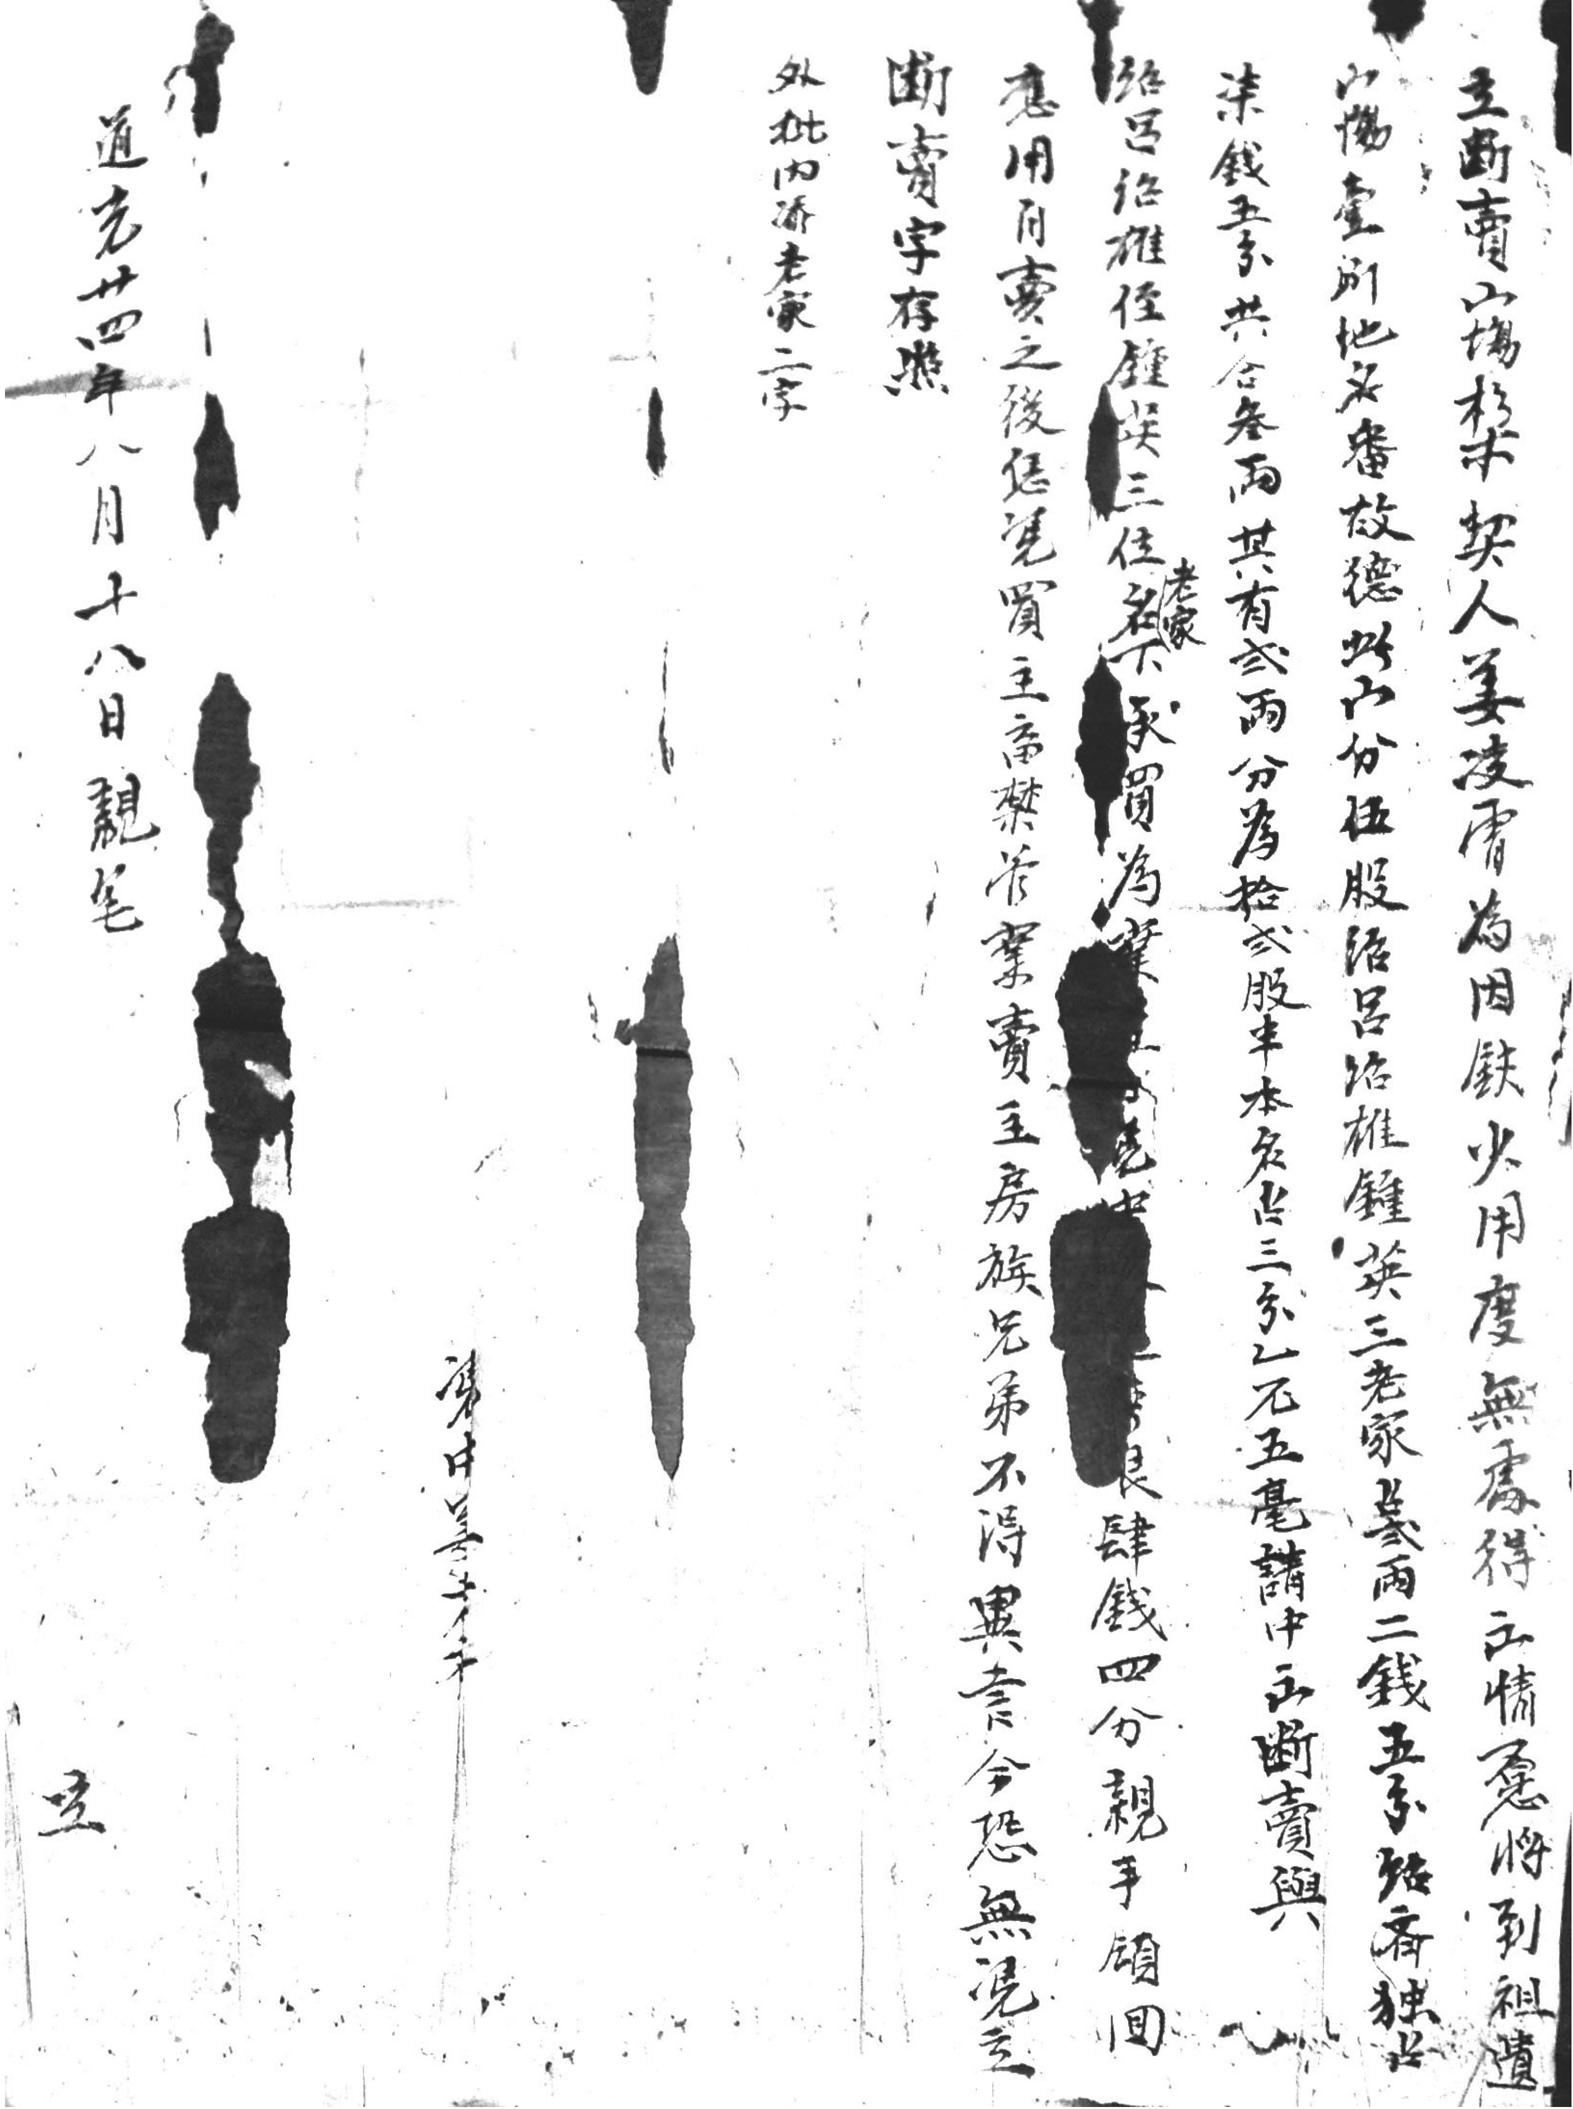 立断賣山塲杉木契人姜凌霄為因缺少用度無處得出情愿將到祖遺
山塲壹所地名番故德此山分伍股紹呂紹雄鍾英三老家占貳兩二錢五分紹齊独占
柒錢五分共合叁兩其有弍兩分為拾弍股半本名占三分乙厘五毫請中出断賣與
紹呂紹雄侄鍾英三位老家名下承買為業中良肆錢四分親手領回
應用自賣之後恁凭買主畜禁管業賣主房族兄弟不得異言今恐無凴立
断賣字存照
外批内添老家二字
凴中姜
道光廿四年八月十八日親筆
立